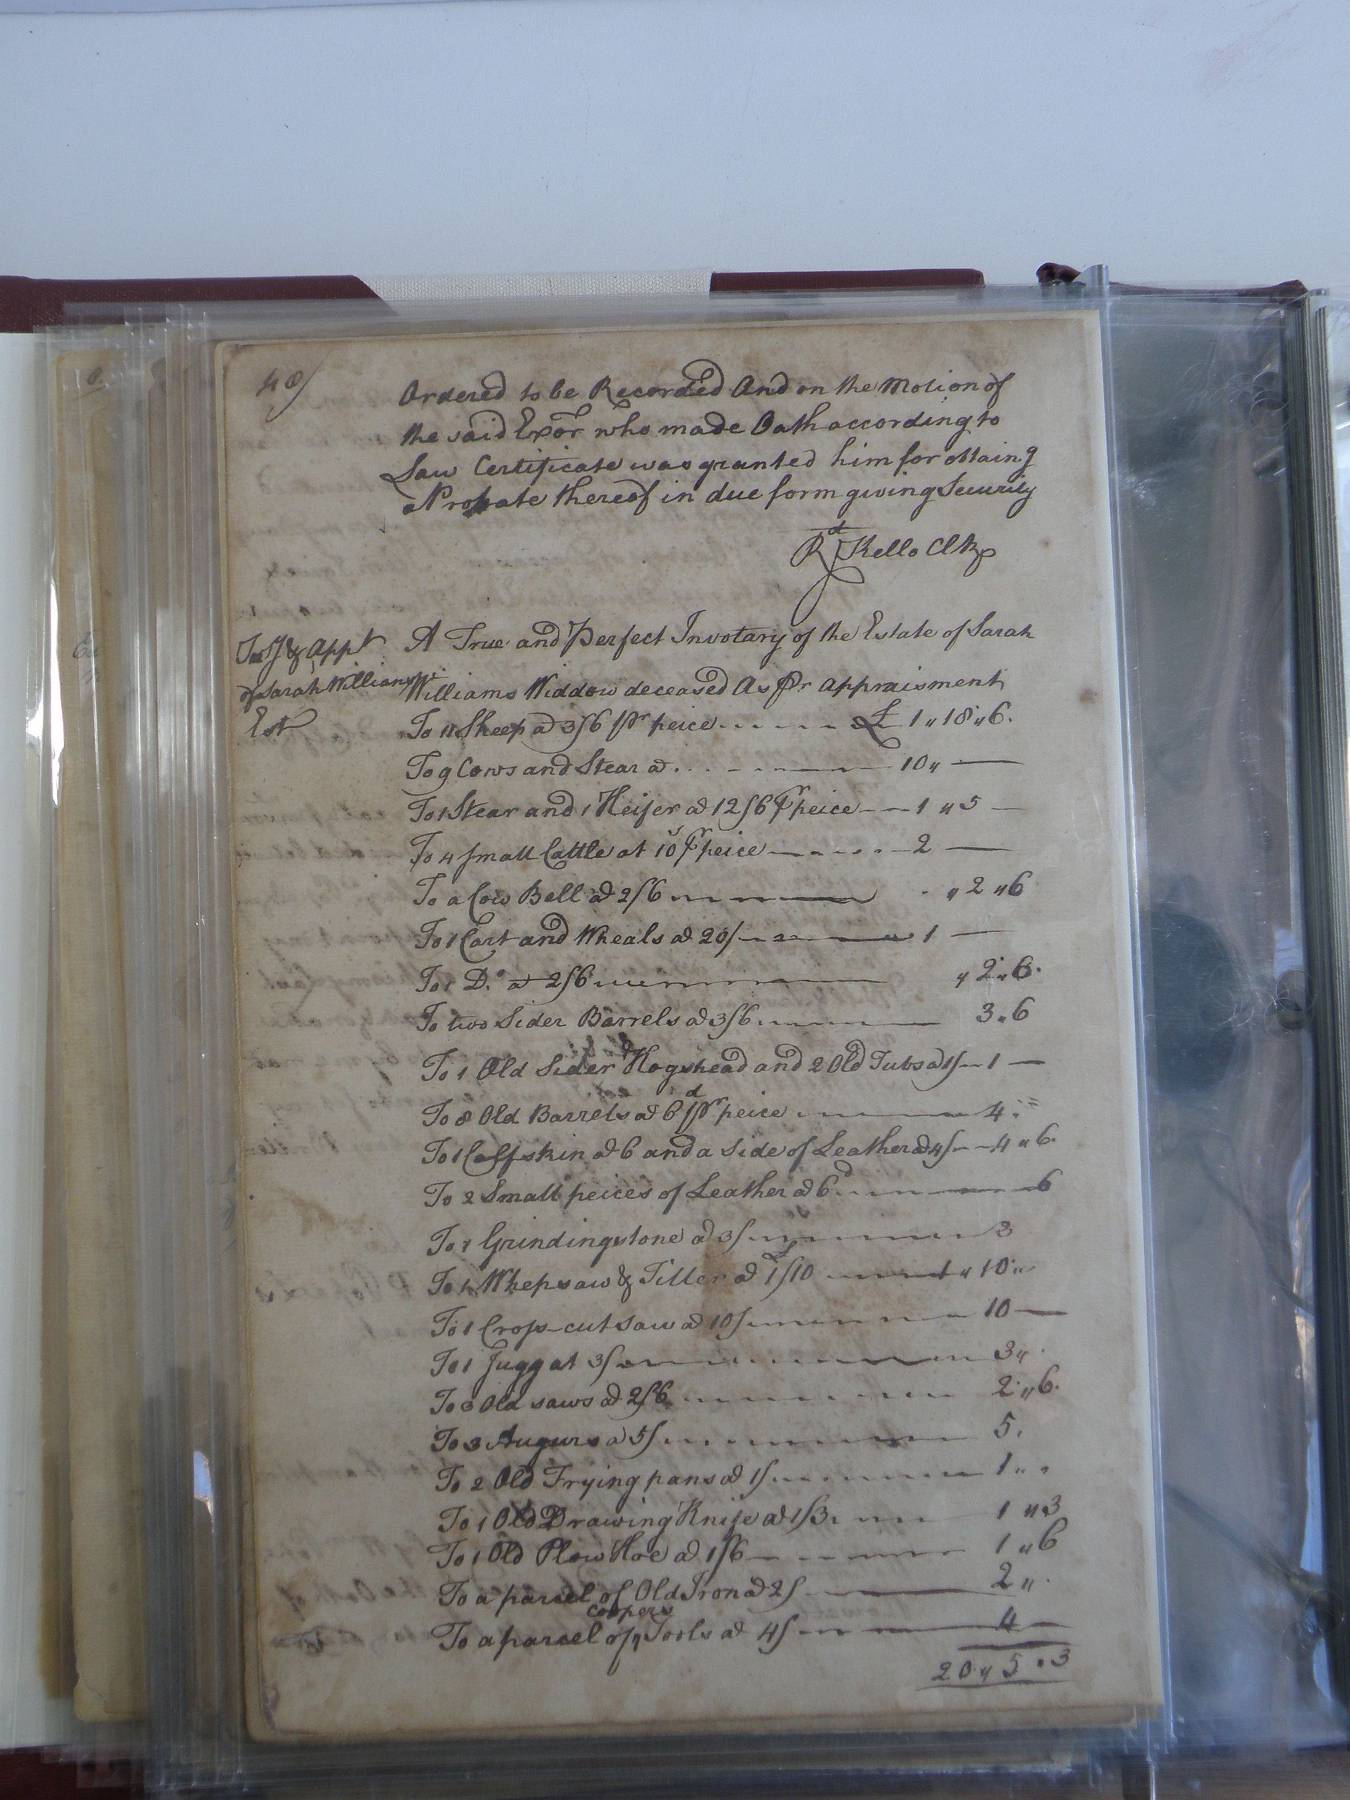 48/
Ordered to be Recorded And on the Motion of
the said Exor who made Oath according to
Law Certificate was granted him for obtaing
a Probate thereof in due form giving Security
Rd Kello Clk
Invy & Appt
of Sarah Williams's
Est
A True and Perfect Invotary of the Estate of Sarah
Williams Widdow deceased As Pr Appraisment
To 11 Sheep at 3/6 Pr peice £ 1 " 18 " 6.
To 9 Cows and Stear at 10 " —
To 1 Stear and 1 Heifer at 12/6 Pr peice 1 " 5 —
To 4 Small Cattle at 10s Pr peice 2 —
To a Cow Bell at 2/6 " 2 " 6
To 1 Cart and Wheals at 20/ 1 —
To 1 Do. at 2/6 " 2 " 6.
To two Sider Barrels at 3/6 3 " 6
To 1 Old Sider Hogshead and 2 Old Tubs at 1/ 1 —
To 8 Old Barrels at 6d Pr peice 4 "
To 1 Calfskin at 6 and a Side of Leather at 4/ 4 " 6.
To 2 Small peices of Leather at 6d 6
To 1 Grindingstone at 3/ 3
To 1 Whepsaw & Tiller at £1/10 1 " 10 "
To 1 Cross-cut Saw at 10/ 10 —
To 1 Jugg at 3/ 3 "
To 3 Old saws at 2/6 2 " 6.
To 3 Augurs at 5/ 5.
To 2 Old Frying pans at 1/ 1 "
To 1 Old Drawing Knife at 1/3. 1 " 3
To 1 Old Plow Hoe at 1/6 1 " 6
To a parcel of Old Iron at 2/ 2 "
Coopers
To a parcel of Tools at 4/ 4 —
20 " 5 " 3